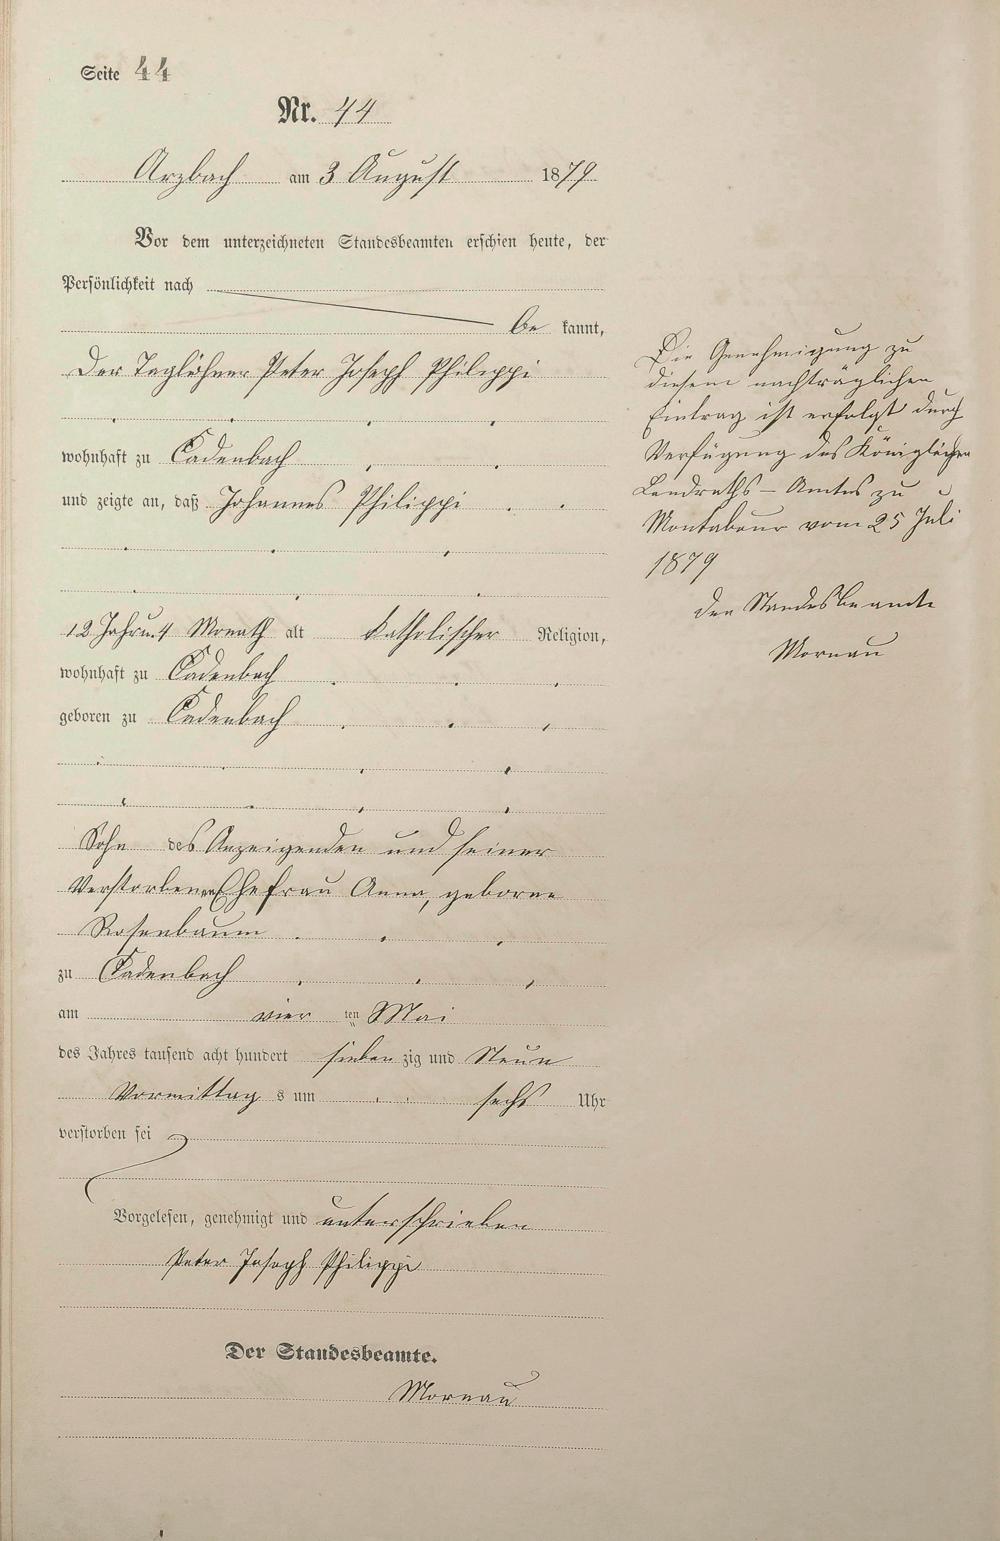 Seite 44
Nr. 44
Arzbach am 3 August 1879
Vor dem unterzeichneten Standesbeamten erschien heute, der
Persönlichkeit nach
be kannt,
Der Taglöhner Peter Joseph Philippi
wohnhaft zu Cadenbach
und zeigte an, daß Johannes Philippi
12 Jahr u. 4 Monath alt katholischer Religion,
wohnhaft zu Cadenbach
geboren zu Cadenbach
Sohn des Anzeigenden und seiner
Verstorbenen Ehefrau Anna, geborne
Rosenbaum
zu Cadenbach
am vier ten Mai
des Jahres tausend acht hundert sieben zig und Neun
Vormittag s um sechs Uhr
verstorben sei
Vorgelesen, genehmigt und unterschrieben
Peter Joseph Philippi
Der Standesbeamte.
Mornau
Die Genehmigung zu
diesem nachträglichen
Eintrag ist erfolgt durch
Verfügung des Königlichen
Landraths-Amtes zu
Montabaur vom 25 Juli
1879
der Standesbeamte
Mornau